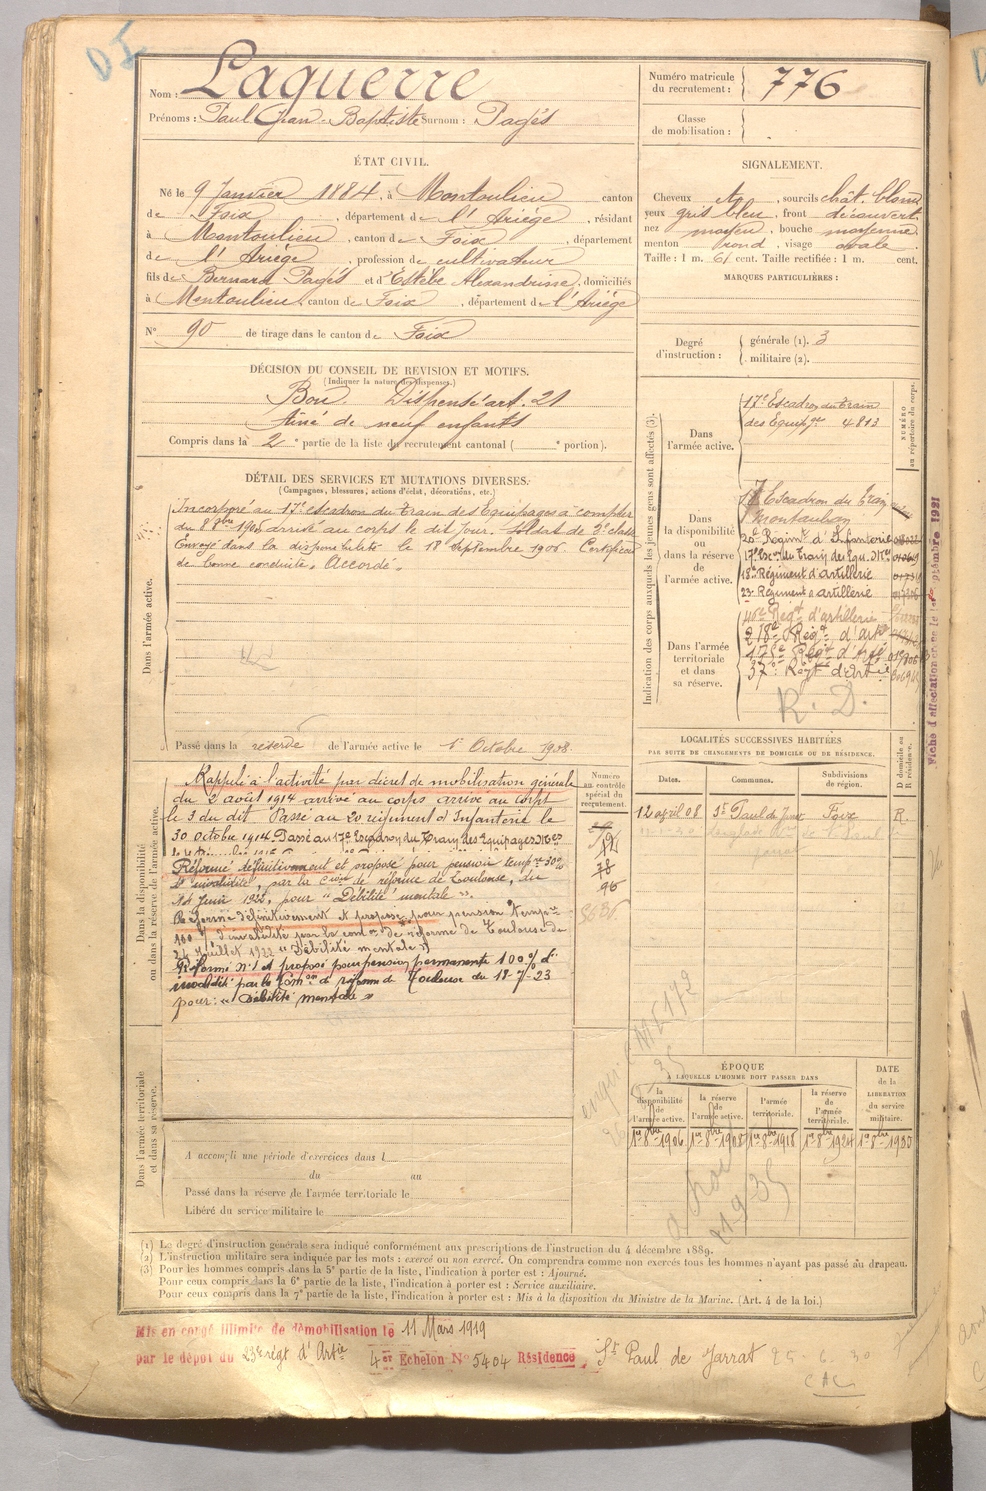 DI
Nom : Laguerre
Prénoms : Paul Jean-Baptiste Surnom : Pagès
Numéro matricule du recrutement : 776
Classe de mobilisation :
ÉTAT CIVIL.
Né le 9 Janvier 1884, à Montoulieu canton
de Foix, département de l'Ariège, résidant
à Montoulieu, canton de Foix, département
de l'Ariège, profession de cultivateur
fils de Bernard Pagès et d'Estèbe Alexandrine, domiciliés
à Montoulieu, canton de Foix, département de l'Ariège
N° 90 de tirage dans le canton de Foix
SIGNALEMENT.
Cheveux, sourcils chât. blond
yeux gris bleu, front découvert
nez moyen, bouche moyenne
menton rond, visage ovale
Taille : 1 m. 61 cent. Taille rectifiée : 1 m. cent.
MARQUES PARTICULIÈRES :
Degré d'instruction : générale (1). 3
militaire (2).
DÉCISION DU CONSEIL DE REVISION ET MOTIFS.
(Indiquer la nature des dispenses.)
Bon Dispensé art. 21
aîné de neuf enfants
Compris dans la 2e partie de la liste du recrutement cantonal ( e portion).
DÉTAIL DES SERVICES ET MUTATIONS DIVERSES.
(Campagnes, blessures, actions d'éclat, décorations, etc.)
Dans l'armée active.
Incorporé au 17e escadron du Train des Equipages à compter
du 8 8bre 1905 arrivé au corps le dit jour. Soldat de 2e classe
Envoyé dans la disponibilité le 18 Septembre 1906. Certificat
de bonne conduite "Accordé"
Passé dans la réserve de l'armée active le 1er Octobre 1908
Indication des corps auxquels les jeunes gens sont affectés (3).
NUMÉRO au répertoire du corps.
Dans l'armée active.
17e Escadron du Train
des Equipges 4813
Dans la disponibilité ou dans la réserve de l'armée active.
17 Escadron du Train
Montauban
20e Régimt d'Infanterie
17e Esc. du Train des Equ. Mres
18e Régiment d'artillerie
23e Régiment d'artillerie
Dans l'armée territoriale et dans sa réserve.
46e Régt d'artillerie
218e Régt d'artie
175e Régt d'Artie
37e Régt d'Artie
R. D.
Fiche d'affectation créée le 1er Septembre 1921
LOCALITÉS SUCCESSIVES HABITÉES
PAR SUITE DE CHANGEMENTS DE DOMICILE OU DE RÉSIDENCE.
Dates. Communes. Subdivisions de région. D domicile ou R résidence.
12 avril 08 St Paul de Jarrat Foix R.
Dans la disponibilité ou dans la réserve de l'armée active.
Numéro au contrôle spécial du recrutement.
Rappelé à l'activité par décret de mobilisation générale
du 2 août 1914 arrivé au corps arrivé au corps
le 3 du dit. Passé au 20 régiment d'Infanterie le
30 Octobre 1914 Passé au 17e Escadron du Train des Equipages Mres
Réformé définitivement et proposé pour pension tempre 30%
d'invalidité, par la Cion de réforme de Toulouse, du
14 Juin 1922, pour "Débilité mentale".
Réformé définitivement et proposé pour pension tempre
100 % d'invalidité par la comon de réforme de Toulouse du
24 Juillet 1922 "Débilité mentale"
Réformé n° 1 et proposé pour pension permanente 100% d'
invalidité par la Comon de réforme de Toulouse du 18-7-23
pour : "débilité mentale"
12
78
96
Dans l'armée territoriale et dans sa réserve.
A accompli une période d'exercices dans l
du au
Passé dans la réserve de l'armée territoriale le
Libéré du service militaire le
ÉPOQUE
A LAQUELLE L'HOMME DOIT PASSER DANS
la disponibilité de l'armée active. la réserve de l'armée active. l'armée territoriale. la réserve de l'armée territoriale. DATE de la LIBÉRATION du service militaire.
1er 8bre 1906 1er 8bre 1908 1er 8bre 1918 1er 8bre 1924 1er 8bre 1930
(1) Le degré d'instruction générale sera indiqué conformément aux prescriptions de l'instruction du 4 décembre 1889.
(2) L'instruction militaire sera indiquée par les mots : exercé ou non exercé. On comprendra comme non exercés tous les hommes n'ayant pas passé au drapeau.
(3) Pour les hommes compris dans la 5e partie de la liste, l'indication à porter est : Ajourné.
Pour ceux compris dans la 6e partie de la liste, l'indication à porter est : Service auxiliaire.
Pour ceux compris dans la 7e partie de la liste, l'indication à porter est : Mis à la disposition du Ministre de la Marine. (Art. 4 de la loi.)
Mis en congé illimité de démobilisation le 11 Mars 1919
par le dépôt du 23e régt d'Artie 4er Echelon N° 5404 Résidence St Paul de Jarrat